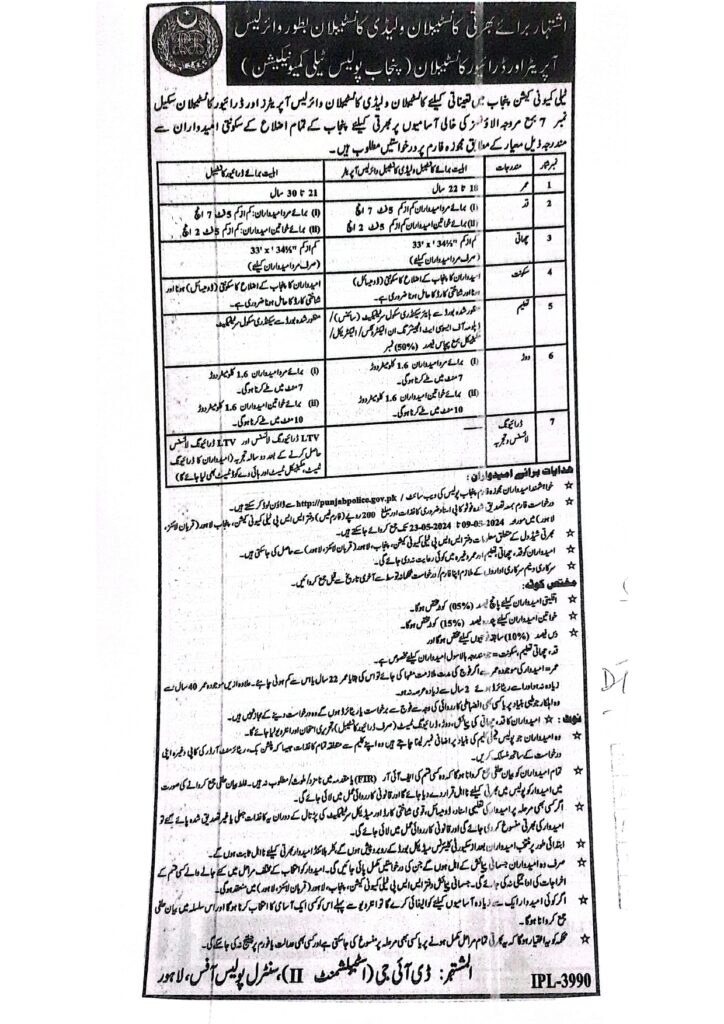 اشتہار برائے بھرتی کانسٹیبلان ولیڈی کانسٹیبلان بطور وائرلیس
آپریٹر اور ڈرائیور کانسٹیبلان (پنجاب پولیس ٹیلی کمیونیکیشن)
ٹیلی کمیونی کیشن پنجاب میں تعیناتی کیلئے کانسٹیبلان ولیڈی کانسٹیبلان وائرلیس آپریٹرز اور ڈرائیور کانسٹیبلان سکیل
نمبر 7 بمع مروجہ الاؤنسز کی خالی آسامیوں پر بھرتی کیلئے پنجاب کے تمام اضلاع کے سکونتی امیدواران سے
مندرجہ ذیل معیار کے مطابق مجوزہ فارم پر درخواستیں مطلوب ہیں۔
نمبر شمار مندرجات اہلیت برائے کانسٹیبل ولیڈی کانسٹیبل وائرلیس آپریٹر اہلیت برائے ڈرائیور کانسٹیبل
1 عمر 18 تا 22 سال 21 تا 30 سال
2 قد (I) برائے مرد امیدواران: کم از کم 5 فٹ 7 انچ (I) برائے مرد امیدواران: کم از کم 5 فٹ 7 انچ
(II) برائے خواتین امیدواران: کم از کم 5 فٹ 2 انچ (II) برائے خواتین امیدواران: کم از کم 5 فٹ 2 انچ
3 چھاتی کم از کم 33' x '34½" کم از کم 33' x '34½"
(صرف مرد امیدواران کیلئے) (صرف مرد امیدواران کیلئے)
4 سکونت امیدواران کا پنجاب کے اضلاع کا سکونتی (ڈومیسائل) امیدواران کا پنجاب کے اضلاع کا سکونتی (ڈومیسائل) ہونا اور
ہونا اور شناختی کارڈ کا حامل ہونا ضروری ہے۔ شناختی کارڈ کا حامل ہونا ضروری ہے۔
5 تعلیم منظور شدہ بورڈ سے ہائیر سیکنڈری سکول سرٹیفکیٹ (سائنس)/ منظور شدہ بورڈ سے سیکنڈری سکول سرٹیفکیٹ
ڈپلومہ آف ایسوسی ایٹ انجینئرنگ ان الیکٹرانکس/الیکٹریکل/
مکینیکل بمع پچاس فیصد (50%) نمبر
6 دوڑ (I) برائے مرد امیدواران 1.6 کلومیٹر دوڑ (I) برائے مرد امیدواران 1.6 کلومیٹر دوڑ
7 منٹ میں طے کرنا ہوگی۔ 7 منٹ میں طے کرنا ہوگی۔
(II) برائے خواتین امیدواران 1.6 کلومیٹر دوڑ (II) برائے خواتین امیدواران 1.6 کلومیٹر دوڑ
10 منٹ میں طے کرنا ہوگی۔ 10 منٹ میں طے کرنا ہوگی۔
7 ڈرائیونگ لائسنس و تجربہ LTV ڈرائیونگ لائسنس اور LTV ڈرائیونگ لائسنس
حاصل کرنے کے بعد دو سالہ تجربہ (امیدواران کا ڈرائیونگ
ٹیسٹ، مکینیکل ٹیسٹ اور ہائی وے کوڈ ٹیسٹ بھی لیا جائے گا)
ھدایات برائے امیدواران:
☆ خواہشمند امیدواران مجوزہ فارم پنجاب پولیس کی ویب سائٹ http://punjabpolice.gov.pk/ سے ڈاؤن لوڈ کر سکتے ہیں۔
☆ درخواست فارم بمعہ تصدیق شدہ فوٹو کاپی اسناد ضروری کاغذات اور مبلغ 200 روپے (فارم فیس) دفتر ایس ایس پی ٹیلی کمیونی کیشن، پنجاب لاہور (قربان لائنز،
لاہور) میں مورخہ 09-05-2024 تا 23-05-2024 تک جمع کروائے جا سکتے ہیں۔
☆ بھرتی شیڈول کے متعلق معلومات دفتر ایس ایس پی ٹیلی کمیونی کیشن، پنجاب، لاہور (قربان لائنز، لاہور) سے حاصل کی جا سکتی ہیں۔
☆ امیدواران کو قد، چھاتی، تعلیم اور عمر وغیرہ میں کوئی رعایت نہ دی جائے گی۔
☆ سرکاری و نیم سرکاری اداروں کے ملازم اپنا فارم/درخواست محکمانہ توسط سے آخری تاریخ سے قبل جمع کروائیں۔
مختص کوٹہ:
☆ اقلیتی امیدواران کیلئے پانچ فیصد (05%) کوٹہ مختص ہوگا۔
☆ خواتین امیدواران کیلئے پندرہ فیصد (15%) کوٹہ مختص ہوگا۔
☆ دس فیصد (10%) سابقہ فوجیوں کیلئے مختص ہوگا اور
قد، چھاتی، تعلیم، سکونت = جو مندرجہ بالا سول امیدواران کیلئے مخصوص ہے۔
عمر = امیدوار کی موجودہ عمر سے اگر فوج کی مدت ملازمت منہا کی جائے تو اس کی بقایا عمر 22 سال یا اس سے کم ہونی چاہئے۔ علاوہ ازیں موجودہ عمر 40 سال سے
زیادہ نہ ہو اور اسے ریٹائرڈ ہوئے 2 سال سے زیادہ عرصہ نہ ہو۔
وہ اہلکار جو طبی بنیاد پر یا کسی بھی انضباطی کارروائی کی وجہ سے فوج سے برخواست یا ریٹائرڈ ہوں گے وہ درخواست دینے کے مجاز نہیں ہیں۔
نوٹ: ☆ امیدواران کا قد، چھاتی کی پیمائش، دوڑ، ڈرائیونگ ٹیسٹ (صرف ڈرائیور کانسٹیبل)، تحریری امتحان اور انٹرویو لیا جائے گا۔
☆ وہ امیدواران جو پولیس فیملی کلیم کی بنیاد پر اضافی نمبر لینا چاہتے ہیں وہ اپنے کلیم سے متعلقہ تمام کاغذات جیسا کہ پنشن بک، ریٹائرمنٹ آرڈر کی کاپی وغیرہ اپنی
درخواست کے ساتھ منسلک کریں۔
☆ تمام امیدواران کو بیان حلفی جمع کروانا ہوگا کہ وہ کسی قسم کی ایف آئی آر (FIR) یا مقدمہ میں نامزد/ملوث/مطلوب نہ ہیں۔ غلط بیان حلفی جمع کروانے کی صورت
میں امیدوار کو پولیس میں بھرتی کیلئے نااہل قرار دے دیا جائے گا اور قانونی کارروائی عمل میں لائی جائے گی۔
☆ اگر کسی بھی مرحلہ پر امیدوار کی تعلیمی اسناد، ڈومیسائل، قومی شناختی کارڈ اور میڈیکل سرٹیفکیٹ کی پڑتال کے دوران یہ کاغذات جعلی یا غیر تصدیق شدہ پائے گئے تو
امیدوار کی بھرتی منسوخ کر دی جائے گی اور قانونی کارروائی عمل میں لائی جائے گی۔
☆ ابتدائی طور پر منتخب امیدواران بعد از سکیورٹی کلیئرنس میڈیکل بورڈ کے روبرو پیش ہوں گے، کلر بلائنڈ امیدوار بھرتی کیلئے نااہل ثابت ہوں گے۔
☆ صرف وہ امیدواران جسمانی پیمائش کے اہل ہوں گے جن کی درخواستیں مکمل پائی جائیں گی۔ امیدواران کو انتخاب کے مختلف مراحل میں کئے جانے والے کسی قسم کے
اخراجات کی ادائیگی نہ کی جائے گی۔ جسمانی پیمائش دفتر ایس ایس پی ٹیلی کمیونی کیشن، پنجاب، لاہور (قربان لائنز، لاہور) میں منعقد ہوگی۔
☆ اگر کوئی امیدوار ایک سے زیادہ آسامیوں کیلئے کوالیفائی کرے گا تو انٹرویو سے پہلے اس کو کسی ایک آسامی کا انتخاب کرنا ہوگا اور اس سلسلہ میں بیان حلفی
جمع کروانا ہوگا۔
☆ محکمہ کو یہ اختیار ہوگا کہ یہ بھرتی تمام مراحل مکمل ہونے پر یا کسی بھی مرحلہ پر منسوخ کی جا سکتی ہے اور کسی بھی عدالت یا فورم پر چیلنج نہ کی جا سکے گی۔
المشتہر: ڈی آئی جی (اسٹیبلشمنٹ II)، سنٹرل پولیس آفس، لاہور
IPL-3990